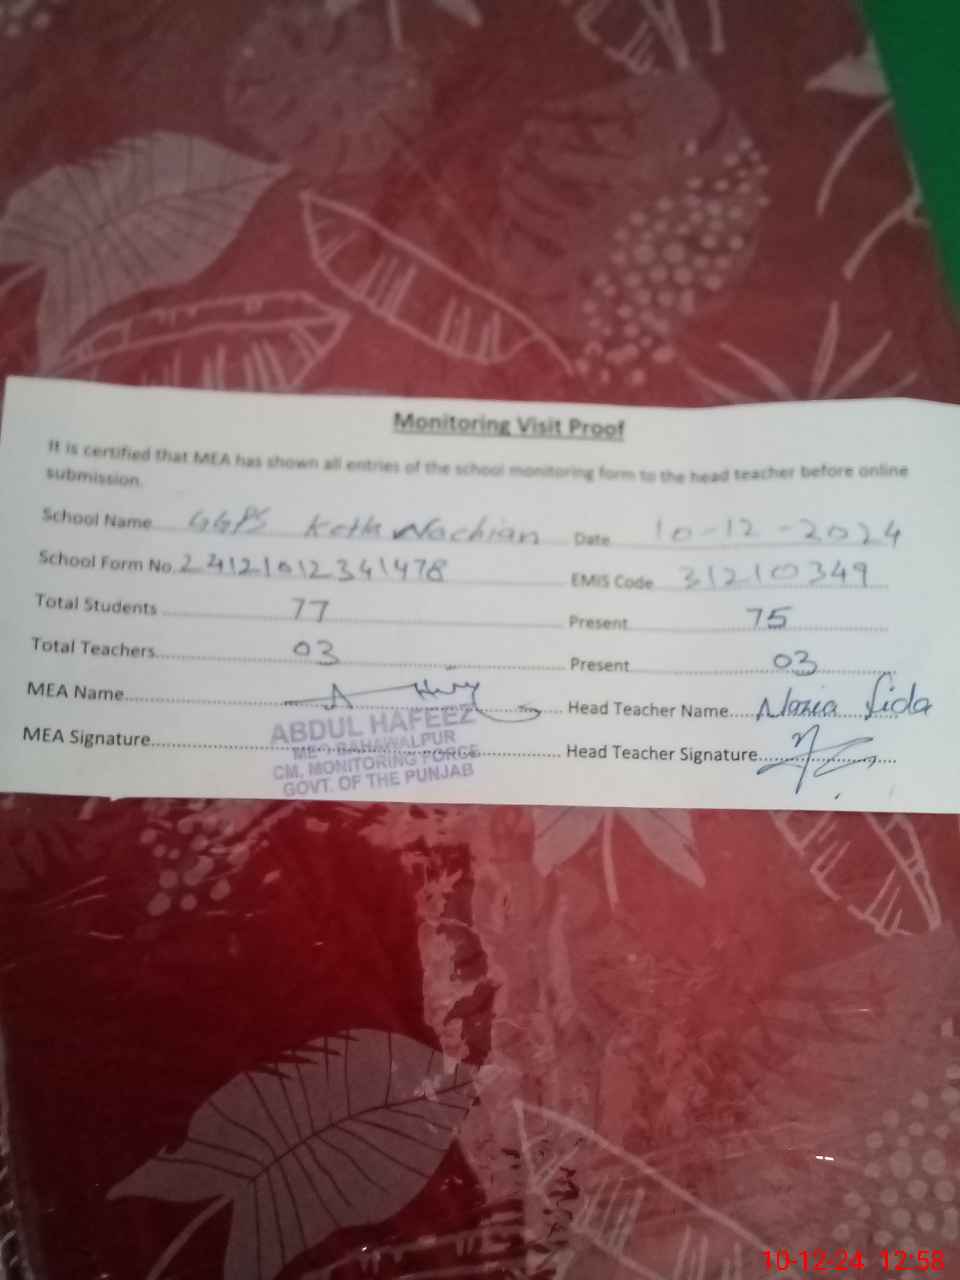 Monitoring Visit Proof
It is certified that MEA has shown all entries of the school monitoring form to the head teacher before online
submission.
School Name GGPS Koth Nachian Date 10-12-2024
School Form No. 24121012341478 EMIS Code 31210349
Total Students 77 Present 75
Total Teachers 03 Present 03
MEA Name Head Teacher Name Nazia
ABDUL HAFEEZ
MEA Signature Head Teacher Signature
BAHAWALPUR
CM. MONITORING FORCE
GOVT. OF THE PUNJAB
10-12-24 12:58